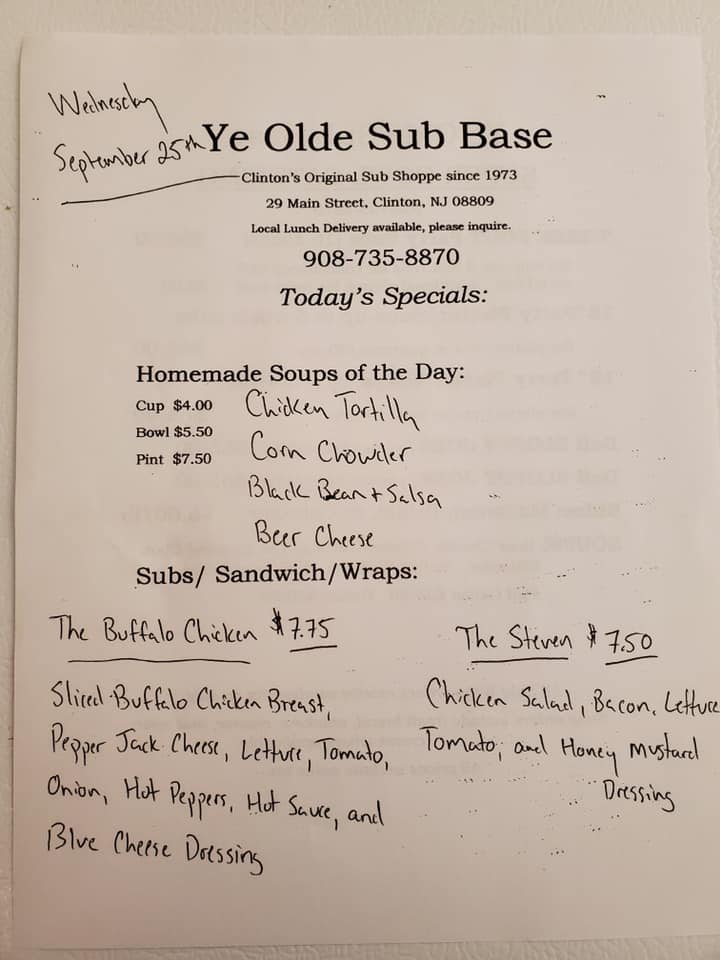 Wednesday
September 25th
Ye Olde Sub Base
Clinton's Original Sub Shoppe since 1973
29 Main Street, Clinton, NJ 08809
Local Lunch Delivery available, please inquire.
908-735-8870
Today's Specials:
Homemade Soups of the Day:
Cup $4.00 Chicken Tortilla
Bowl $5.50 Corn Chowder
Pint $7.50
Black Bean + Salsa
Beer Cheese
Subs/ Sandwich/Wraps:
The Buffalo Chicken $7.75
Sliced Buffalo Chicken Breast,
Pepper Jack Cheese, Lettuce, Tomato,
Onion, Hot Peppers, Hot Sauce, and
Blue Cheese Dressing
The Steven $7.50
Chicken Salad, Bacon, Lettuce
Tomato, and Honey Mustard
Dressing